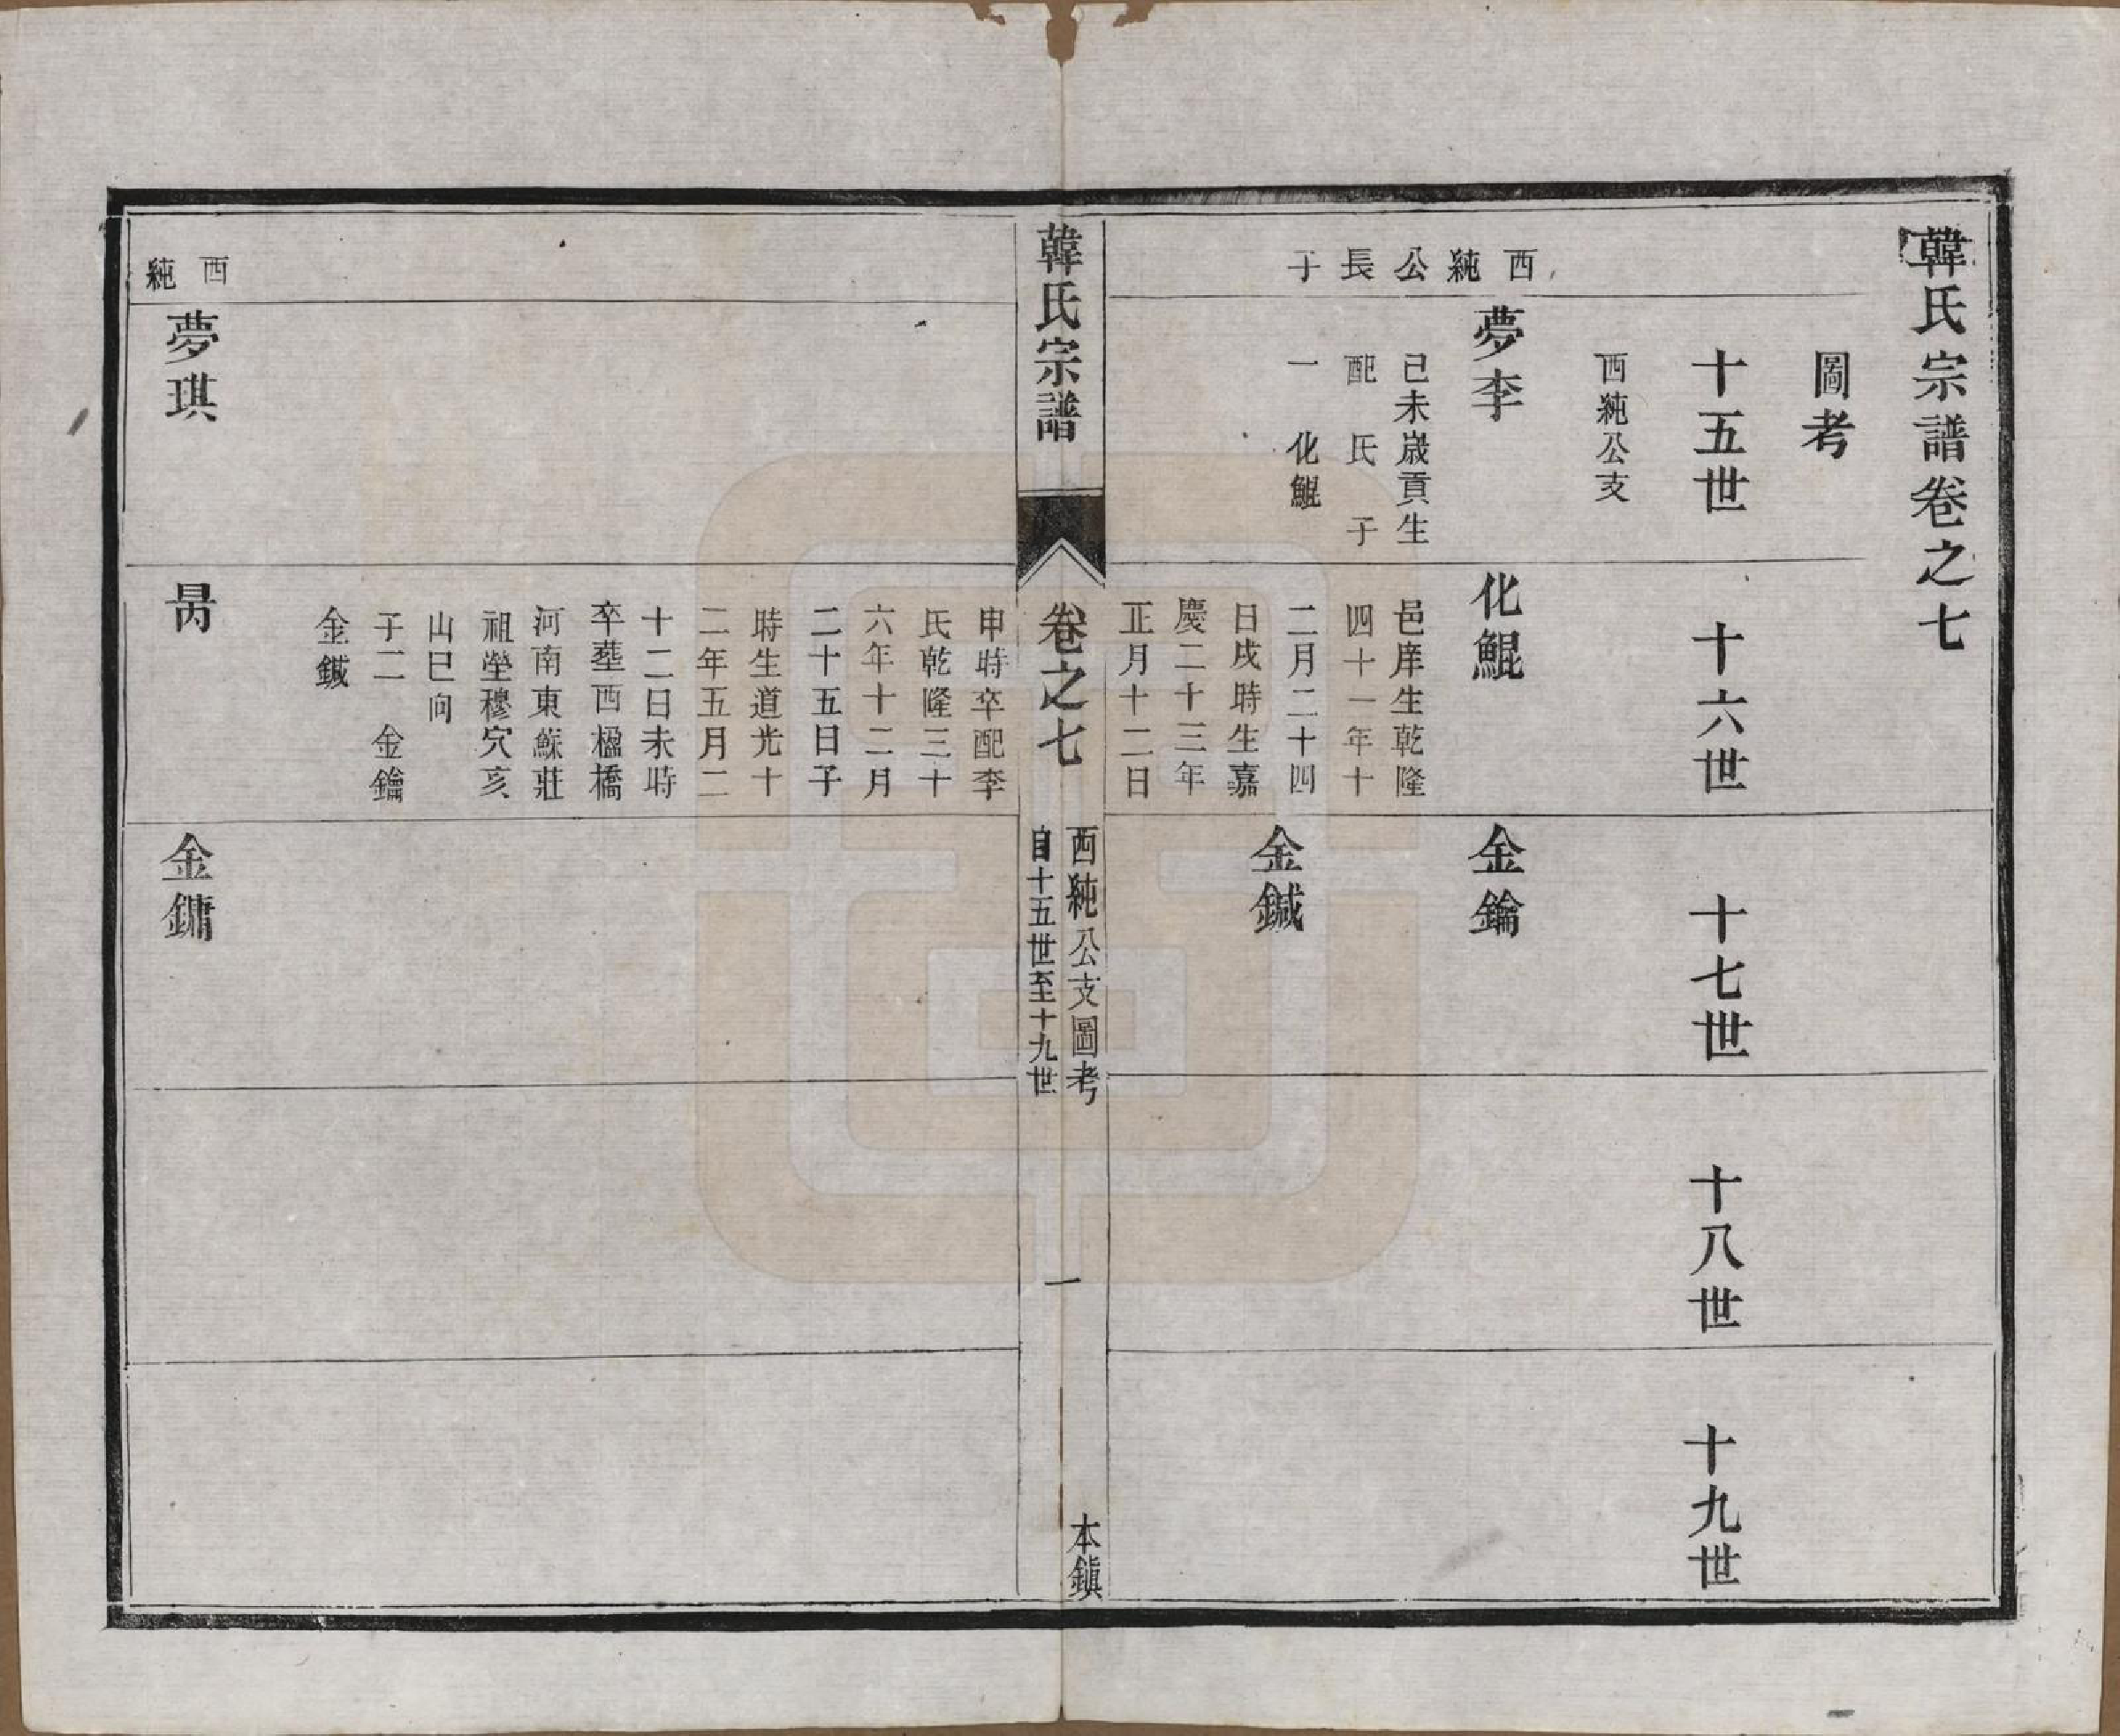 韓氏宗譜卷之七
圖考
十五世
十六世
十七世
十八世
十九世
西純公支
西純公長子
夢李
己未歲貢生
配　氏　子
一　化鯤
化鯤
邑庠生乾隆
四十一年十
二月二十四
日戌時生嘉
慶二十三年
正月十二日
申時卒配李
氏乾隆三十
六年十二月
二十五日子
時生道光十
二年五月二
十二日未時
卒塟西楹橋
河南東蘇莊
祖塋穆穴亥
山巳向
子二　金鑰
金鍼
金鑰
金鍼
韓氏宗譜
卷之七
西純公支圖考
自十五世至十九世
一
本鎮
西純
夢琪
金鏞